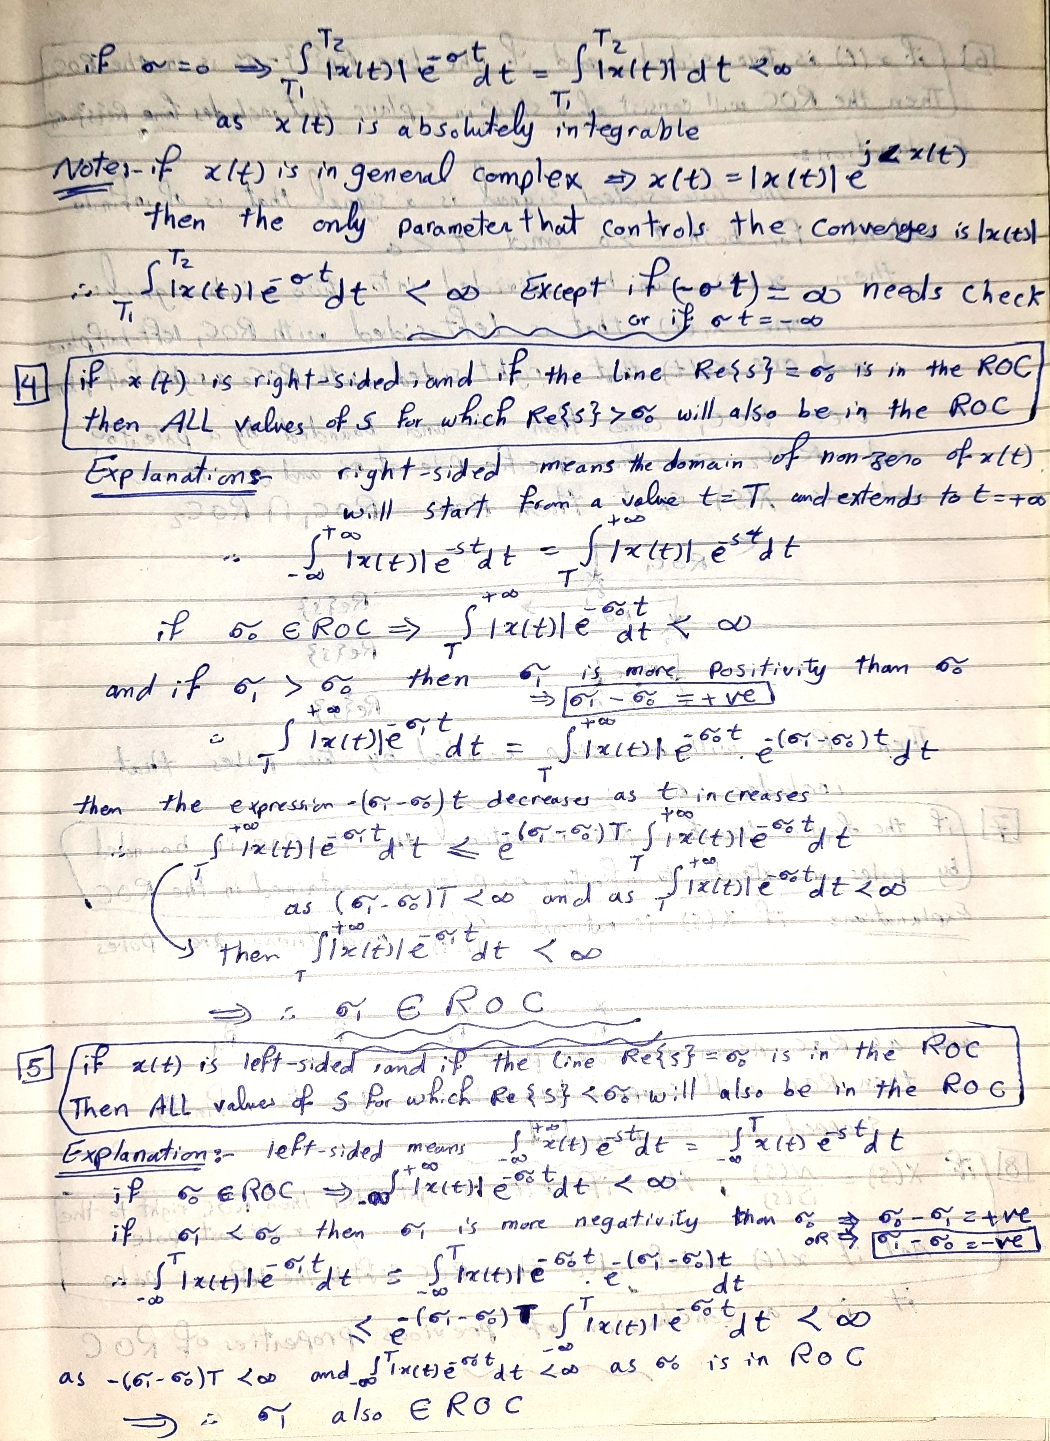 if σ=0 ⇒ ∫_{T1}^{T2} |x(t)| e^{-σt} dt = ∫_{T1}^{T2} |x(t)| dt < ∞
as x(t) is absolutely integrable
Note:- if x(t) is in general complex ⇒ x(t) = |x(t)| e^{j∠x(t)}
then the only parameter that controls the converges is |x(t)|
∴ ∫_{T1}^{T2} |x(t)| e^{-σt} dt < ∞ Except if (-σt) = ∞ needs check
or if σt = -∞
4 if x(t) is right-sided, and if the line Re{s} = σ₀ is in the ROC
then ALL values of s for which Re{s} > σ₀ will also be in the ROC
Explanation:- right-sided means the domain of non-zero of x(t)
will start from a value t=T and extends to t=+∞
∴ ∫_{-∞}^{+∞} |x(t)| e^{-st} dt = ∫_{T}^{+∞} |x(t)| e^{-st} dt
if σ₀ ∈ ROC ⇒ ∫_{T}^{+∞} |x(t)| e^{-σ₀t} dt < ∞
and if σ₁ > σ₀ then σ₁ is more positivity than σ₀
⇒ σ₁ - σ₀ = +ve
∴ ∫_{T}^{+∞} |x(t)| e^{-σ₁t} dt = ∫_{T}^{+∞} |x(t)| e^{-σ₀t} . e^{-(σ₁-σ₀)t} dt
then the expression -(σ₁-σ₀)t decreases as t increases
∴ ∫_{T}^{+∞} |x(t)| e^{-σ₁t} dt ≤ e^{-(σ₁-σ₀)T} ∫_{T}^{+∞} |x(t)| e^{-σ₀t} dt
as (σ₁-σ₀)T < ∞ and as ∫_{T}^{+∞} |x(t)| e^{-σ₀t} dt < ∞
then ∫_{T}^{+∞} |x(t)| e^{-σ₁t} dt < ∞
⇒ ∴ σ₁ ∈ ROC
5 if x(t) is left-sided, and if the line Re{s} = σ₀ is in the ROC
Then ALL values of s for which Re{s} < σ₀, will also be in the ROC
Explanation:- left-sided means ∫_{-∞}^{+∞} x(t) e^{-st} dt = ∫_{-∞}^{T} x(t) e^{-st} dt
if σ₀ ∈ ROC ⇒ ∫_{-∞}^{+∞} |x(t)| e^{-σ₀t} dt < ∞
if σ₁ < σ₀ then σ₁ is more negativity than σ₀ ⇒ σ₀ - σ₁ = +ve
OR ⇒ σ₁ - σ₀ = -ve
∴ ∫_{-∞}^{T} |x(t)| e^{-σ₁t} dt = ∫_{-∞}^{T} |x(t)| e^{-σ₀t} . e^{-(σ₁-σ₀)t} dt
≤ e^{-(σ₁-σ₀)T} ∫_{-∞}^{T} |x(t)| e^{-σ₀t} dt < ∞
as -(σ₁-σ₀)T < ∞ and ∫_{-∞}^{T} |x(t) e^{-σ₀t} dt < ∞ as σ₀ is in ROC
⇒ ∴ σ₁ also ∈ ROC